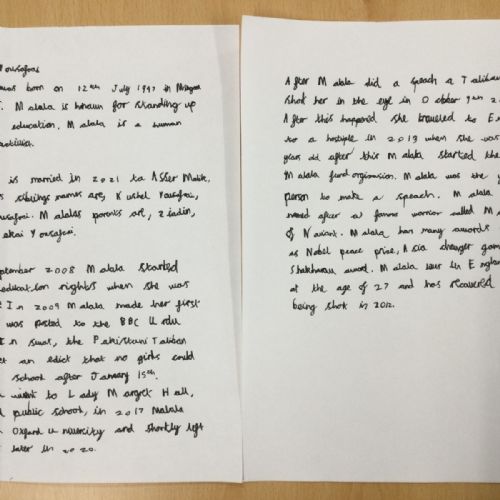 Yousafzai
was born on 12th July 1997 in Mingora
. Malala is known for standing up
education. Malala is a human
activist.
is married in 2021 to Asser Malik.
s siblings names are, Kushal Yousafzai,
usafzai. Malalas parents are, ziadin,
ekai Yousafzai.
ptember 2008 Malala started
education rights when she was
In 2009 Malala made her first
was posted to the BBC Urdu
In swat, the Pakistani Taliban
et an edict that no girls could
school after January 15th.
went to Lady Margret Hall,
d public school, in 2017 Malala
Oxford university and shortly left
later in 2020.
After Malala did a speach a Taliban
shot her in the eye in October 9th 2
After this happend she traveled to E
to a hostiple in 2013 when she was
years old after this Malala started the
Malala fund orginisation. Malala was the y
person to make a speach. Malala
named after a famous warrior called M
of Maiwand. Malala has many awards
as Nobel peace prize, Asia game
award. Malala lives in England
at the age of 27 and has recovered
being shot in 2012.